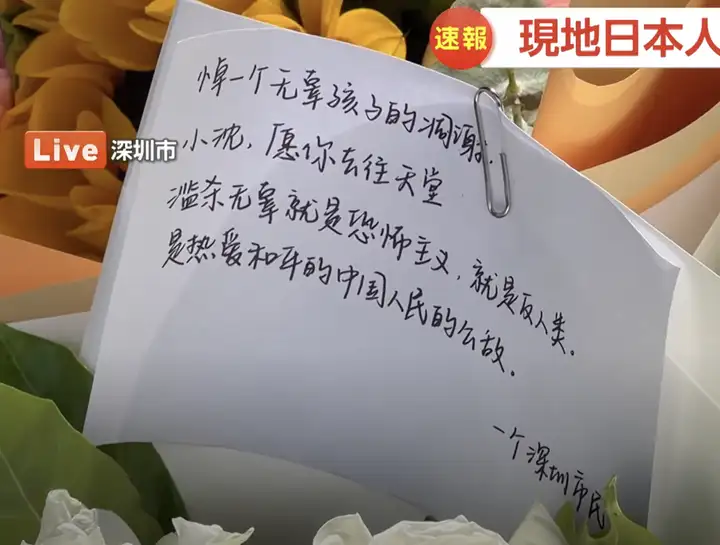 速報
現地日本人
Live 深圳市
悼一个无辜孩子的凋谢.
小沈，愿你去往天堂
滥杀无辜就是恐怖主义，就是反人类。
是热爱和平的中国人民的公敌。
一个深圳市民